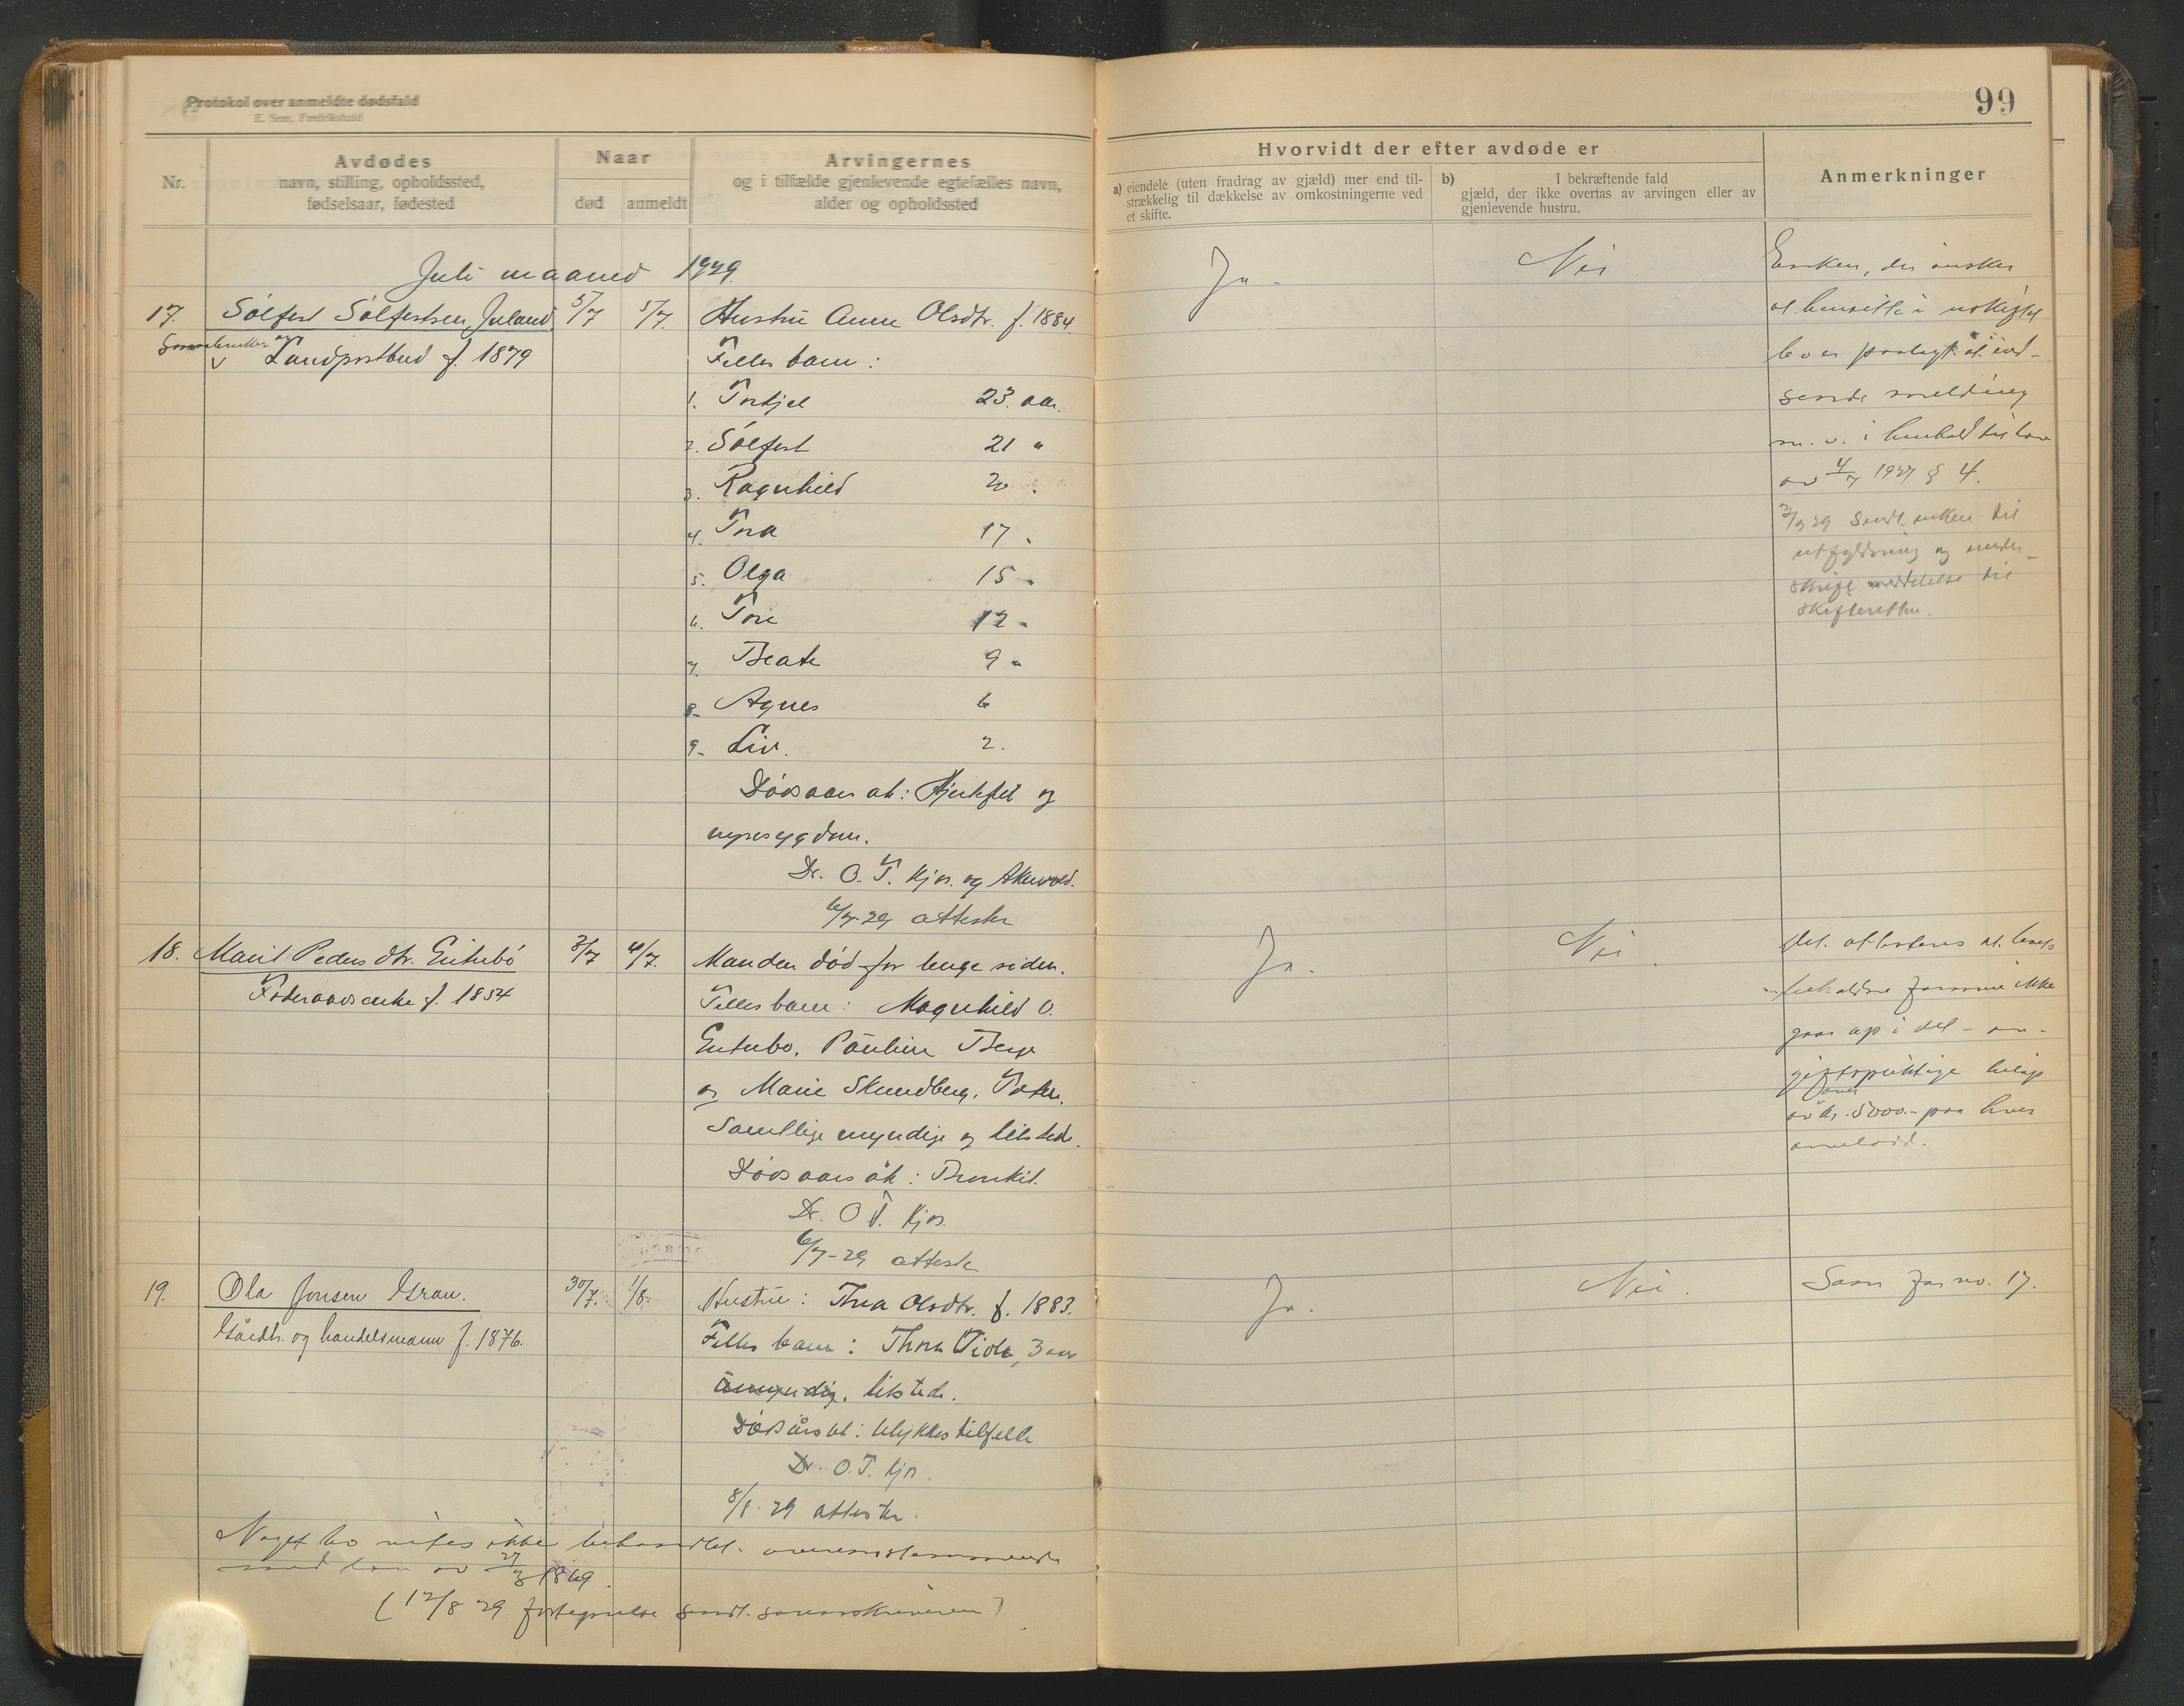 Protokol over anmeldte dødsfald
E. Sem, Fredrikshald
99
Nr.
Avdødes
navn, stilling, opholdssted,
fødselsaar, fødested
Naar
død
anmeldt
Arvingernes
og i tilfælde gjenlevende egtefælles navn,
alder og opholdssted
Hvorvidt der efter avdøde er
a) eiendele (uten fradrag av gjæld) mer end til-
strækkelig til dækkelse av omkostningerne ved
et skifte.
b) I bekræftende fald
gjæld, der ikke overtas av arvingen eller av
gjenlevende hustru.
Anmerkninger
Juli maaned 1929.
17. Sølfest Sølfestsen Juland 5/7 5/7. Hustru Anne Olsdtr. f. 1884.
og Landpostbud f. 1879
Felles barn:
1. Torkjel 23. aar.
2. Sølfest 21 "
3. Ragnhild 20 "
4. Tora 17 "
5. Olga 15 "
6. Tore 12 "
7. Beate 9 "
8. Agnes 6
9. Liv. 2.
Dødsaarsak: Hjertefeil og
nyresygdom.
Dr. O. T. Kjos. og
6/7-29 attester
Ja. Nei
Enken, der ønsker
at hensitte i uskiftet
bo er paalagt at ind-
sende melding
m. v. i henhold til lov
av 4/7 1927 § 4.
29 Sendt enken til
utfyldning og under-
skrift meddelelse til
skifteretten.
18. Marit Pedersdtr. Enkebø 3/7 4/7. Manden død for lenge siden.
Føderaadsenke f. 1854
Felles barn: Magnhild O.
Pauline Berge
og Marie Skundberg,
Samtlige myndige og tilstede.
Dødsaarsak: Bronkit.
Dr. O T. Kjos.
6/7-29 attest
Ja. Nei.
Det attesteres at boets
beholdne formue ikke
gaar op i det - av-
giftspliktige beløp
over
av kr. 5000.- paa hver
arvelodd.
19. Ola Jonsen Grau. 30/7. 1/8. Hustru: Thea Olsdtr. f. 1883.
Gårdbr. og handelsmann f. 1876.
Felles barn: Thora 3 aar
Umyndig. tilstede.
Dødsårsak: Ulykkestilfelle
Dr. O. T. Kjos.
8/8-29 attester.
Ja. Nei. Som for no. 17.
Noget bo vites ikke behandlet overensstemmende
med lov av 27/3 1869.
(12/8 29 fortegnelse sendt sorenskriveren)